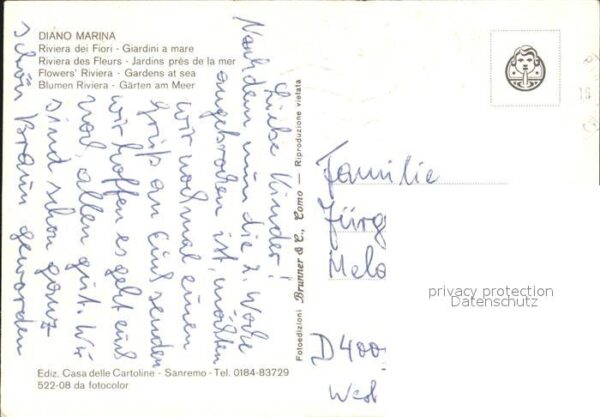 DIANO MARINA
Riviera dei Fiori - Giardini a mare
Riviera des Fleurs - Jardins prés de la mer
Flowers' Riviera - Gardens at sea
Blumen Riviera - Gärten am Meer
Liebe Kinder!
Nachdem nun die 2. Woche
angebroden ist, möchten
wir nochmal einen
Gruß an Euch senden
wir hoffen es geht euch
noch allen gut. Wir
sind schon ganz
schön Braun geworden
Fotoedizioni Brunner & C., Como — Riproduzione vietata
Familie
Jürg
Melo
D 400
West
privacy protection
Datenschutz
Ediz. Casa delle Cartoline - Sanremo - Tel. 0184-83729
522-08 da fotocolor